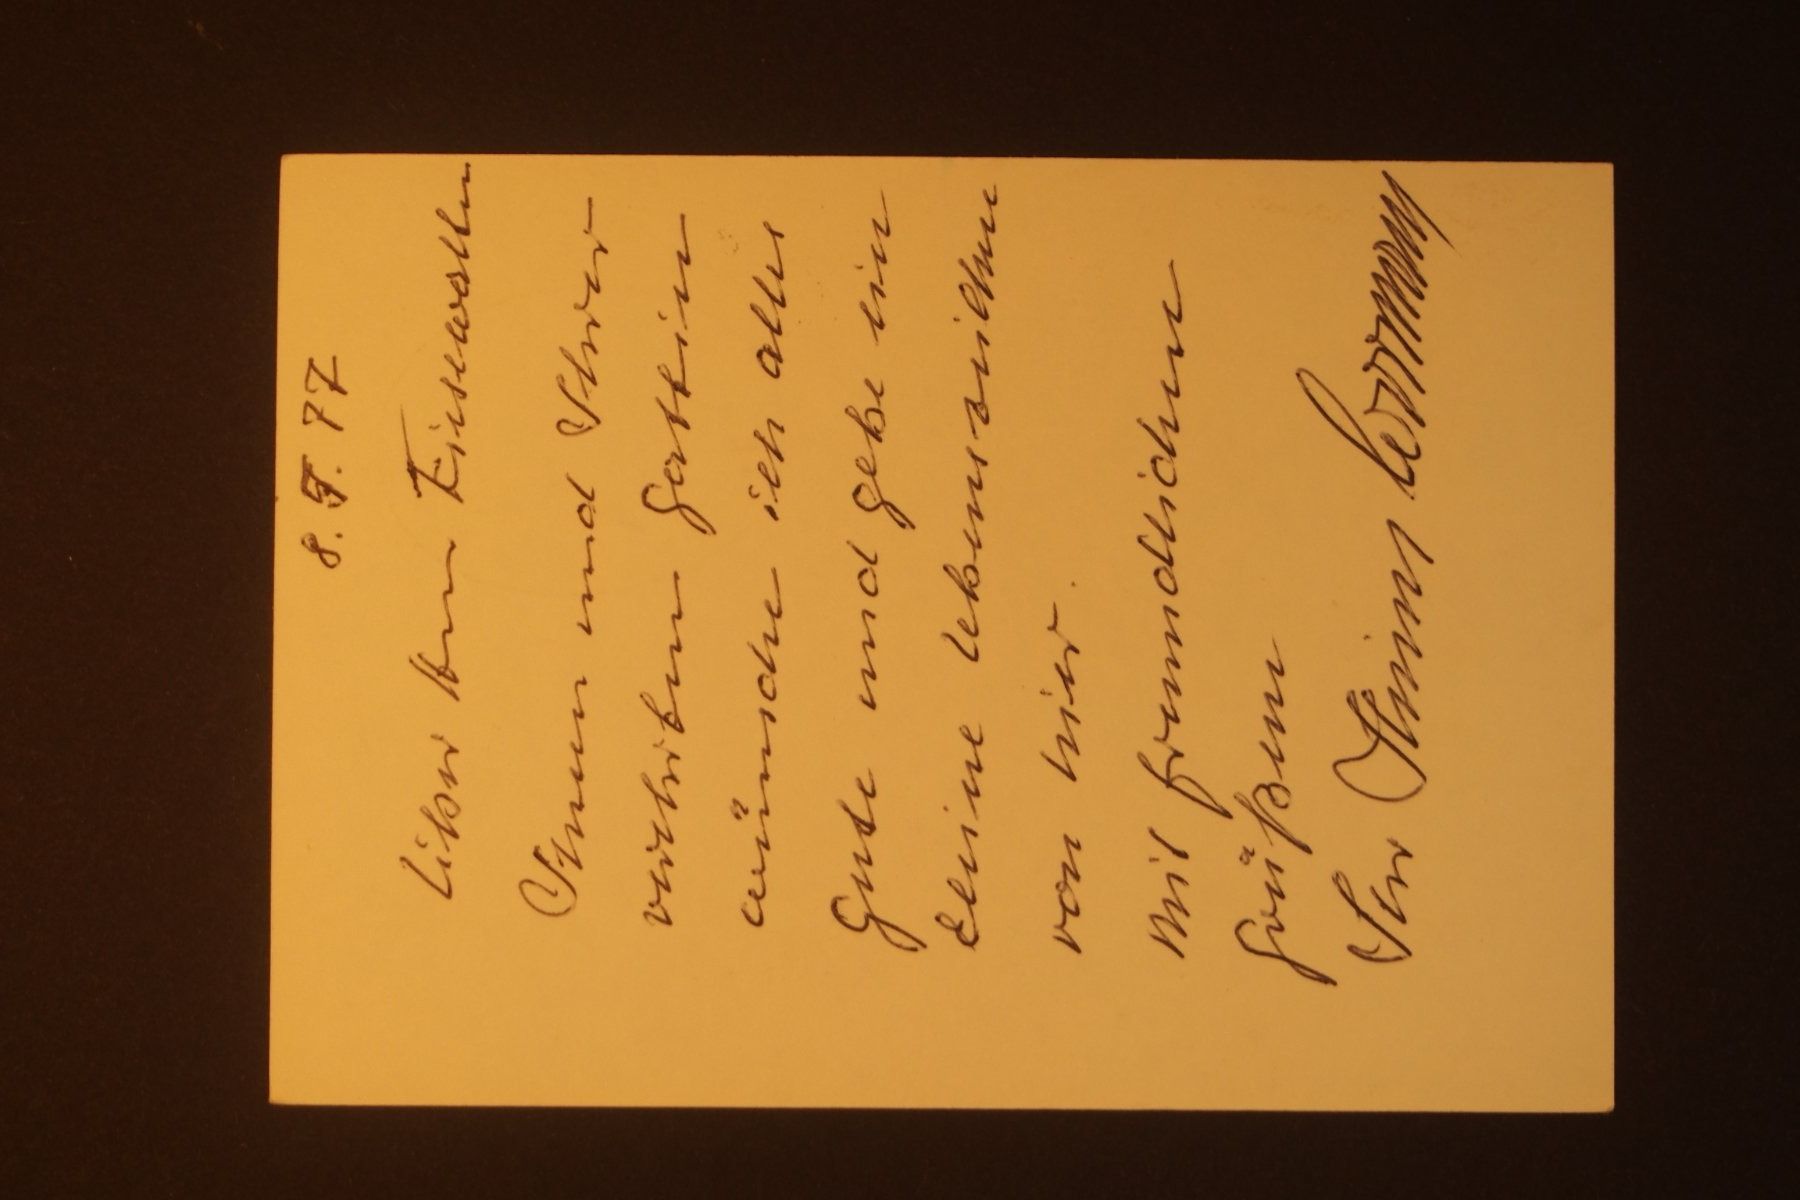 8. 5. 77
Lieber Herr
Ihnen und Ihrer
verehrten Gattin
wünsche ich alles
Gute und gebe ein
kleines Lebenszeichen
von hier.
Mit freundlichen
Grüßen
Ihr